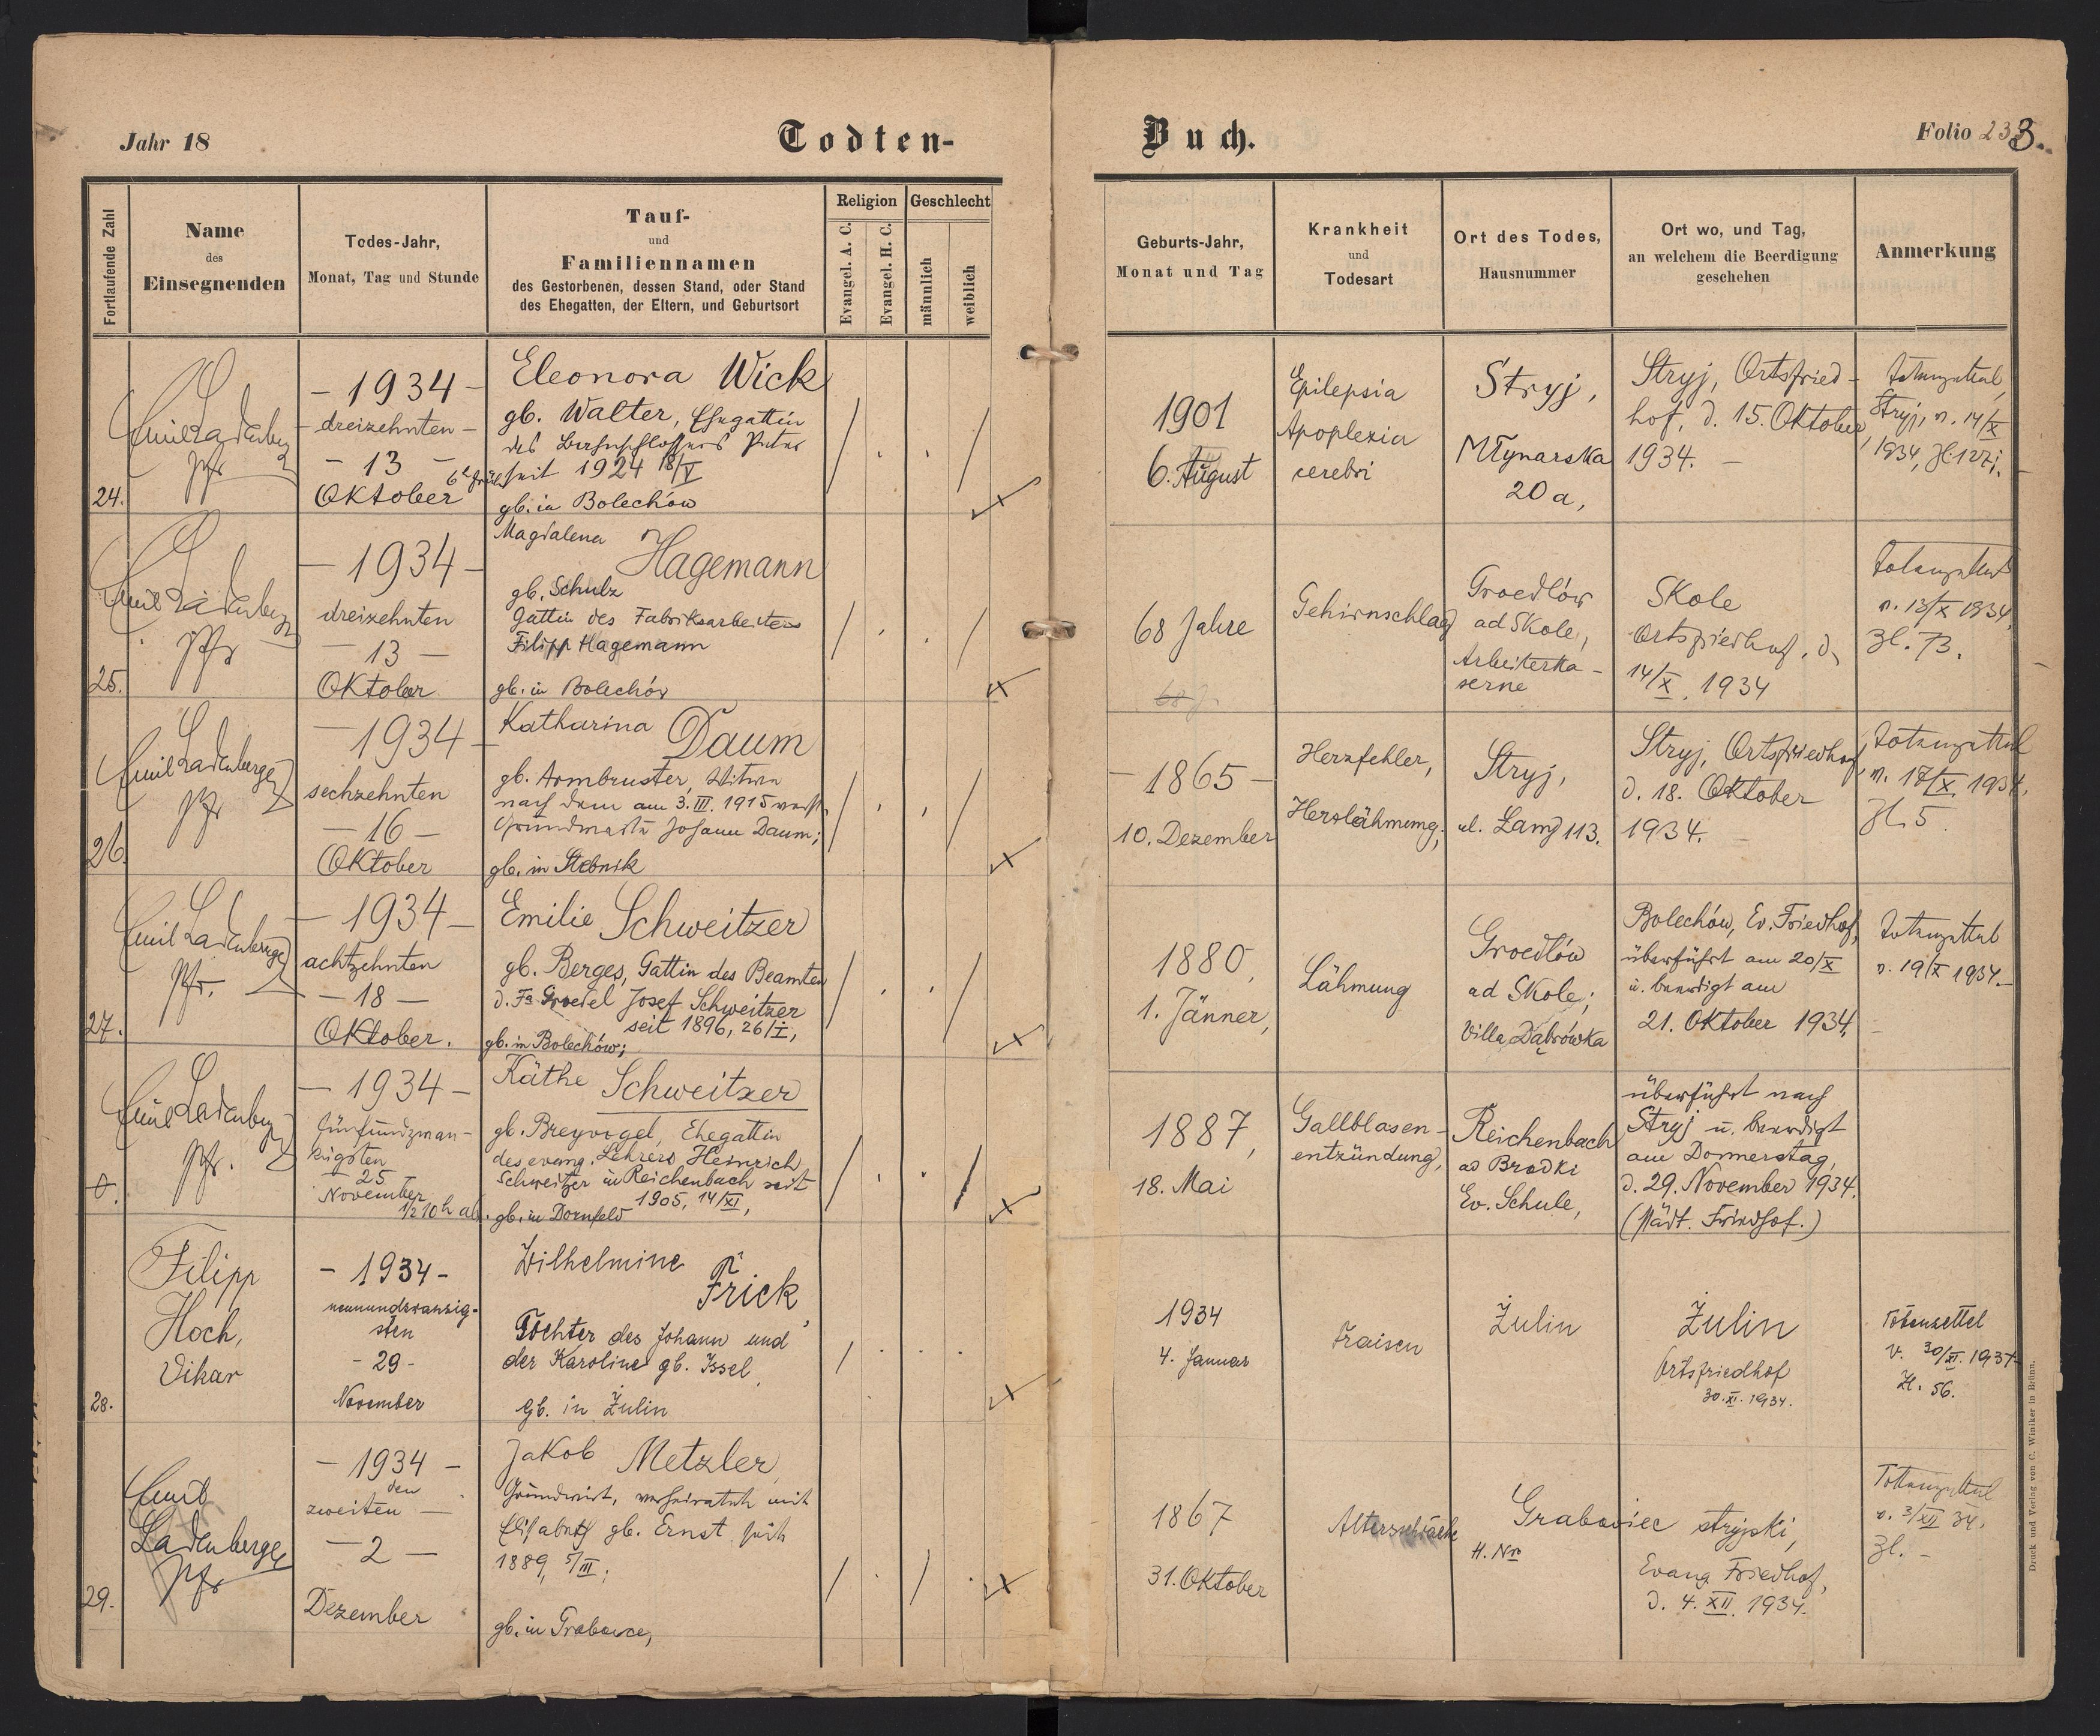 Jahr 18
Todten-
Buch.
Folio 233.
Fortlaufende Zahl
Name
des
Einsegnenden
Todes-Jahr,
Monat, Tag und Stunde
Tauf-
und
Familiennamen
des Gestorbenen, dessen Stand, oder Stand
des Ehegatten, der Eltern, und Geburtsort
Religion
Evangel. A. C.
Evangel. H. C.
Geschlecht
männlich
weiblich
Geburts-Jahr,
Monat und Tag
Krankheit
und
Todesart
Ort des Todes,
Hausnummer
Ort wo, und Tag,
an welchem die Beerdigung
geschehen
Anmerkung
24.
Emil Ladenberger
Pfr
- 1934 -
- dreizehnten -
- 13 -
Oktober
Eleonora Wick
gb. Walter, Ehegattin
des Bahnschlossers Peter
seit 1924 18/V
gb. in Bolechów
1901
6. August
Epilepsia
Apoplexia
cerebri
Stryj,
Młynarska
20a,
Stryj, Ortsfried-
hof, d. 15. Oktober
1934. -
Stryj, v. 14/X
1934,
25.
Emil Ladenberger
Pfr
- 1934 -
dreizehnten
- 13 -
Oktober
Magdalena
Hagemann
gb. Schulz
Gattin des Fabriksarbeiters
Filipp Hagemann
gb. in Bolechów
68 Jahre
68 J.
Gehirnschlag
Groedlów
ad Skole,
Arbeiterka-
serne
Skole
Ortsfriedhof, d.
14/X. 1934
Totenzettel
v. 13/X 1934,
Zl. 73.
26.
Emil Ladenberger
Pfr
- 1934 -
sechzehnten
- 16 -
Oktober
Katharina Daum
gb. Armbruster, Witwe
nach dem am 3. III. 1915 verst.
Johann Daum;
gb. in Stebnik
- 1865 -
10. Dezember
Herzfehler,
Herzlähmung,
Stryj,
ul. Łany 113.
Stryj, Ortsfriedhof,
d. 18. Oktober
1934. -
Totenzettel
v. 17/X. 1934.
Zl. 5.
27.
Emil Ladenberger
Pfr.
- 1934 -
achtzehnten
- 18 -
Oktober.
Emilie Schweitzer
gb. Berges, Gattin des Beamten
d. Fa Groedel Josef Schweitzer
seit 1896, 26/I,
gb. in Bolechów;
1880,
1. Jänner,
Lähmung
Groedlów
ad Skole;
Villa Dąbrówka
Bolechów, Ev. Friedhof,
überführt am 20/X
u. beerdigt am
21. Oktober 1934.
Totenzettel
v. 19/X 1934.-
0.
Emil Ladenberger
Pfr.
- 1934 -
fünfundzwan-
zigsten
- 25 -
November
1/2 10 h ab.
Käthe Schweitzer
gb. Breyvogel, Ehegattin
des evang. Lehrers Heinrich
Schweitzer in Reichenbach seit
1905, 14/XI,
gb. in Dornfeld
1887,
18. Mai
Gallblasen-
entzündung,
Reichenbach
ad Brodki
Ev. Schule,
überführt nach
Stryj u. beerdigt
am Donnerstag,
d. 29. November 1934.
(städt. Friedhof.)
28.
Filipp
Hoch,
Vikar
- 1934 -
neunundzwanzig-
sten
- 29 -
November
Wilhelmine
Frick,
Tochter des Johann und
der Karoline gb. Issel
gb. in Żulin
1934
4. Januar
Fraisen
Żulin
Żulin
Ortsfriedhof
30. XI. 1934.
Totenzettel
v. 30/XI. 1934
Zl. 56.
29.
Emil
Ladenberger
Pfr
- 1934 -
den
zweiten -
- 2 -
Dezember
Jakob Metzler,
Grundwirt, verheiratet mit
Elisabeth gb. Ernst seit
1889, 5/III;
gb. in Grabowce,
1867
31. Oktober
Altersschwäche
Grabowiec stryjski,
H. Nro
Evang. Friedhof,
d. 4. XII. 1934.
Totenzettel
v. 3/XII 34.
Zl. -
Druck und Verlag von C. Winiker in Brünn.